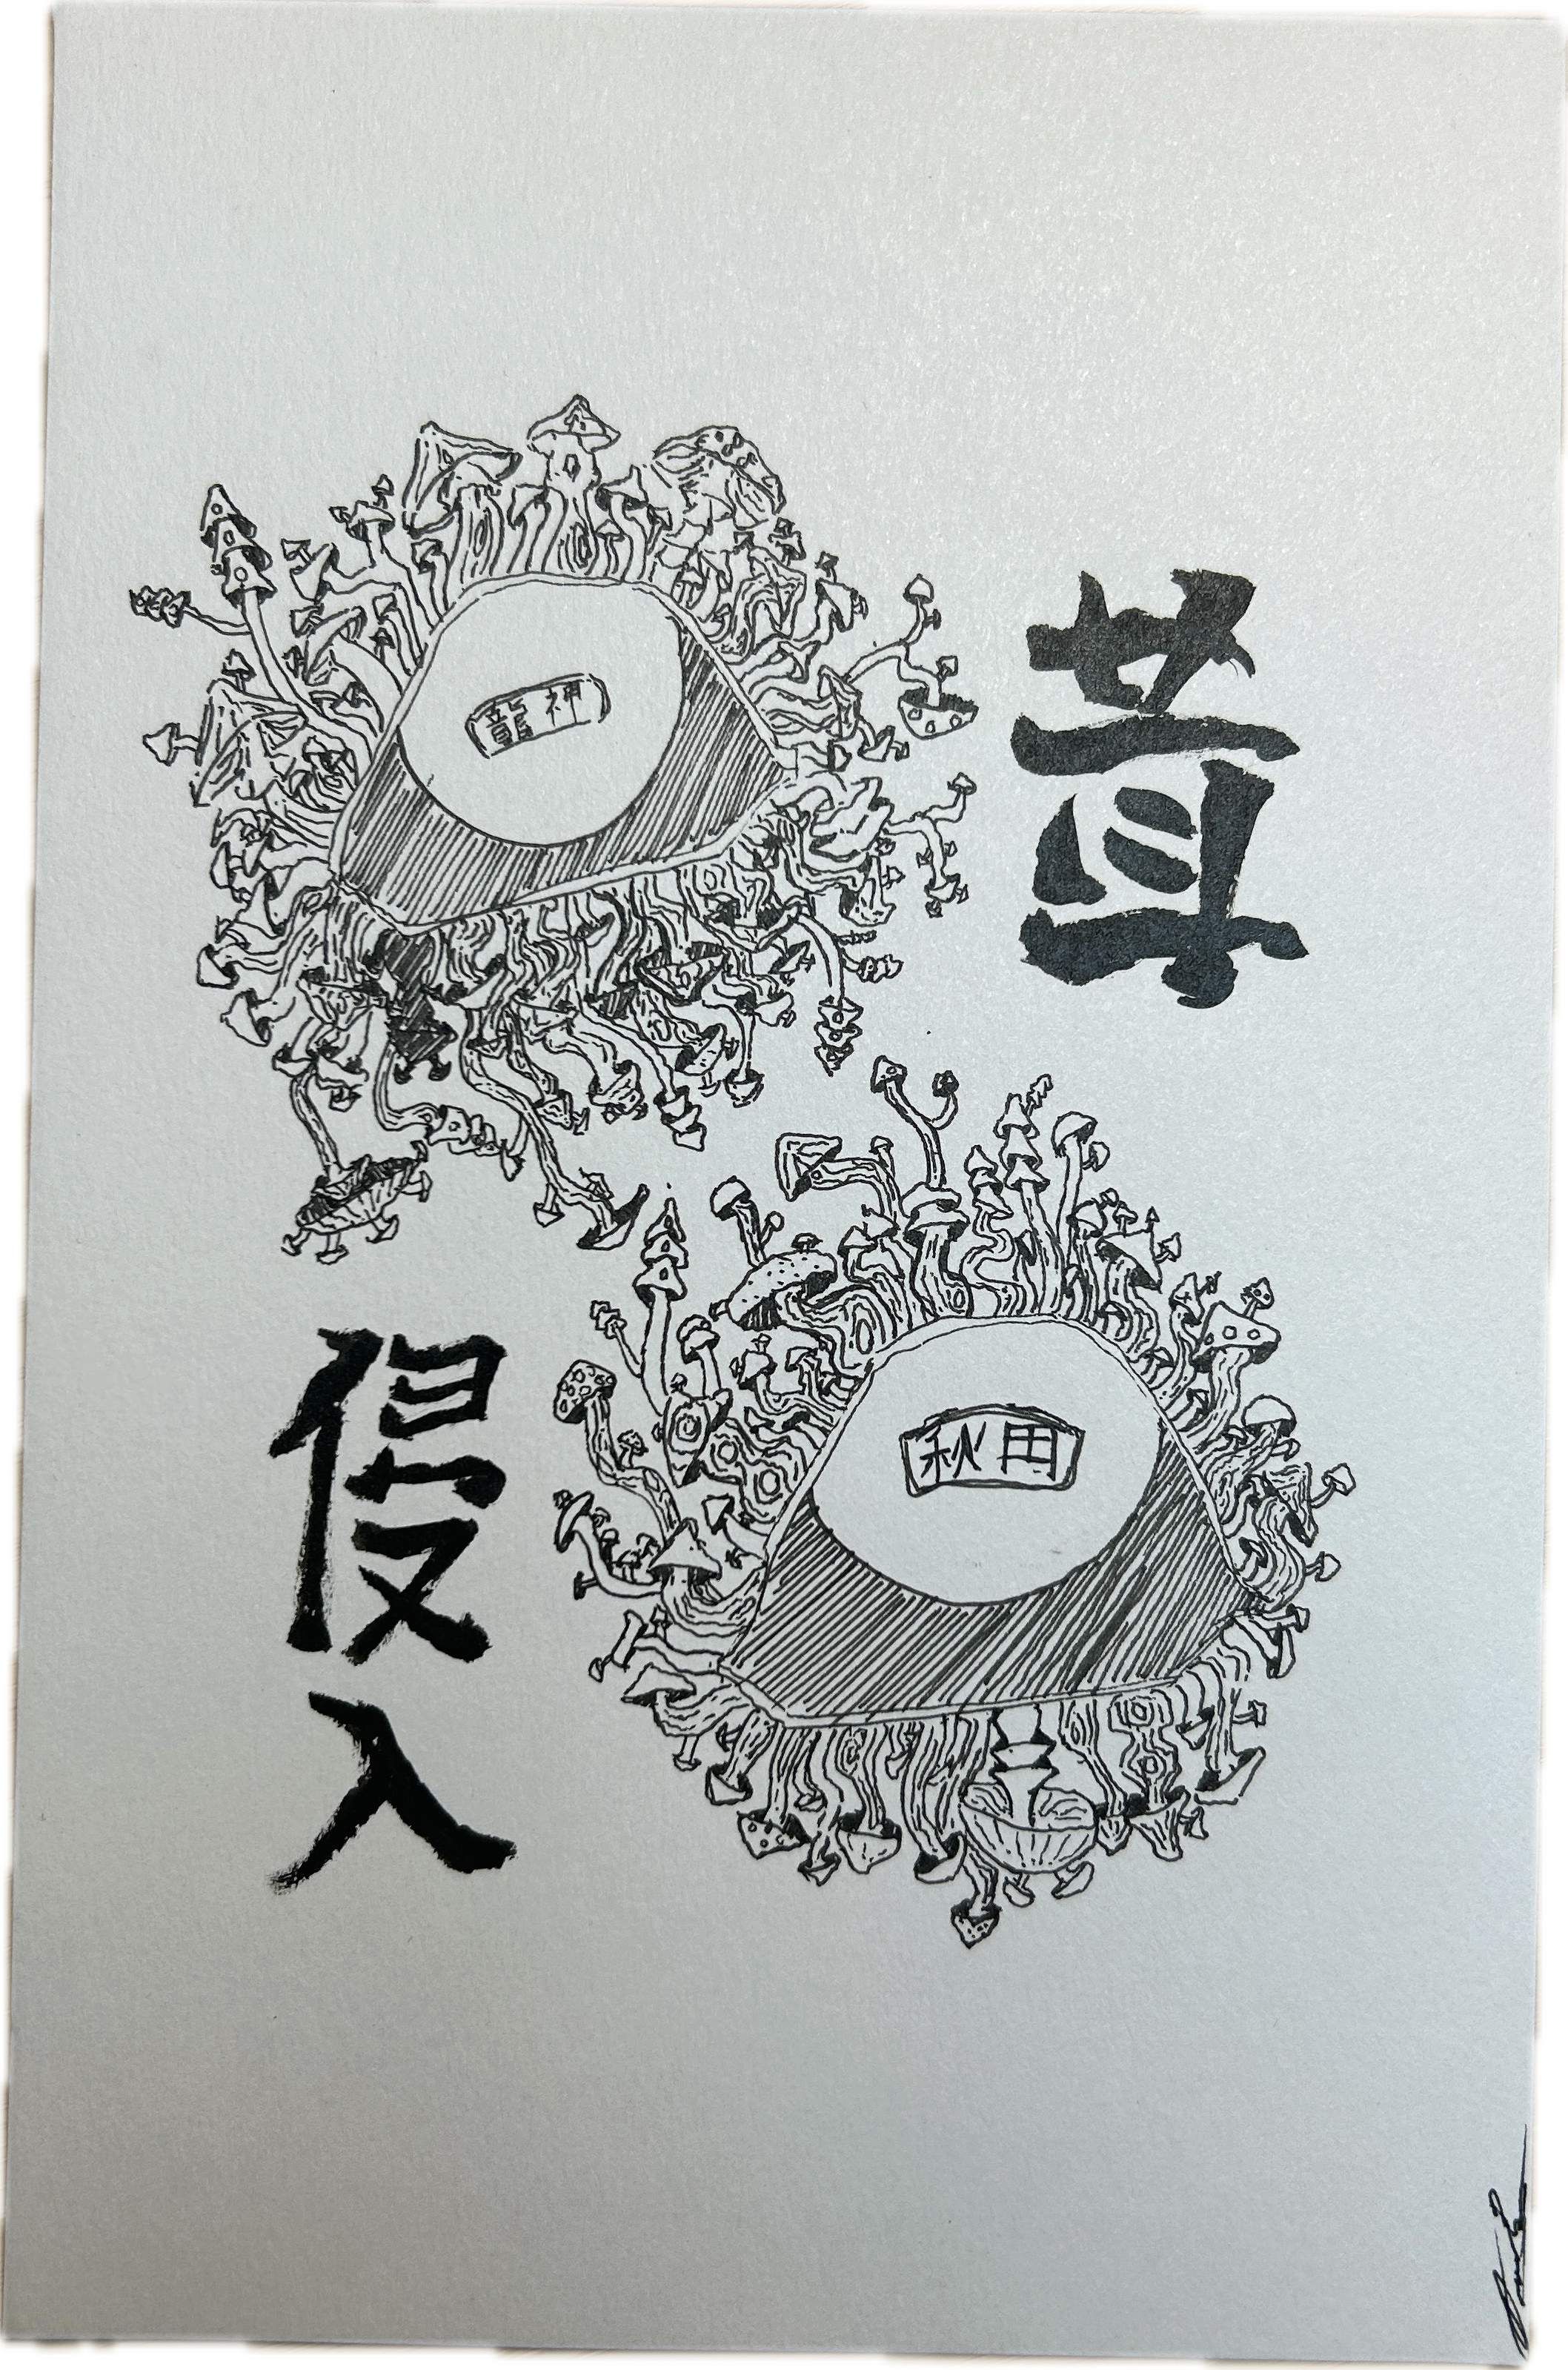 茸
龍神
秋田
侵入